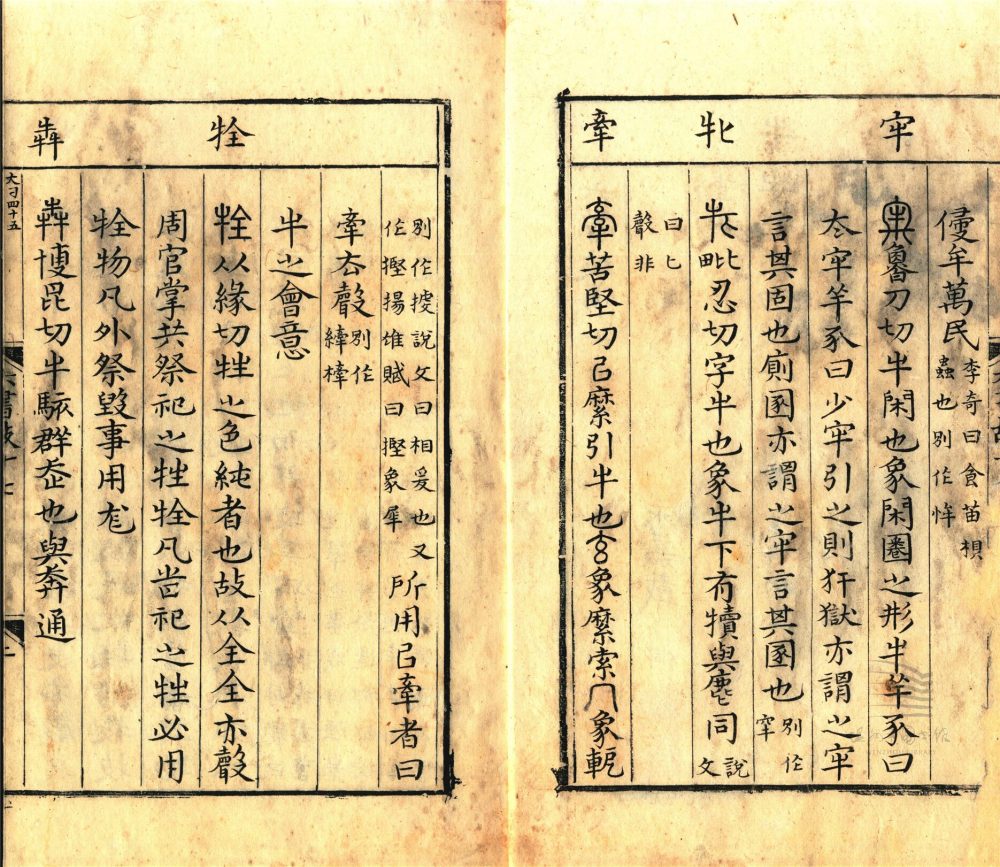 牢
牝
牽
侵牟萬民李奇曰食苗根
蟲也別作恈
牢魯刀切牛閑也象閑圈之形牛羊豕曰
大牢羊豕曰少牢引之則犴獄亦謂之牢
言其固也廁圂亦謂之牢言其圂也別作
窂
牝毗忍切字牛也象牛下有犢與麀同說
文
曰匕
聲非
牽苦堅切㠯縻引牛也玄象縻索冂象軶
牷
犇
別作㩮說文曰相爰也又
作摼揚雄賦曰摼象犀
所用㠯牽者曰
牽去聲別作
縴
牛之會意
牷从緣切牲之色純者也故从全全亦聲
周官掌共祭祀之牲牷凡旹祀之牲必用
牷物凡外祭毀事用尨
犇博昆切牛駭群走也與奔通
大刁四十五